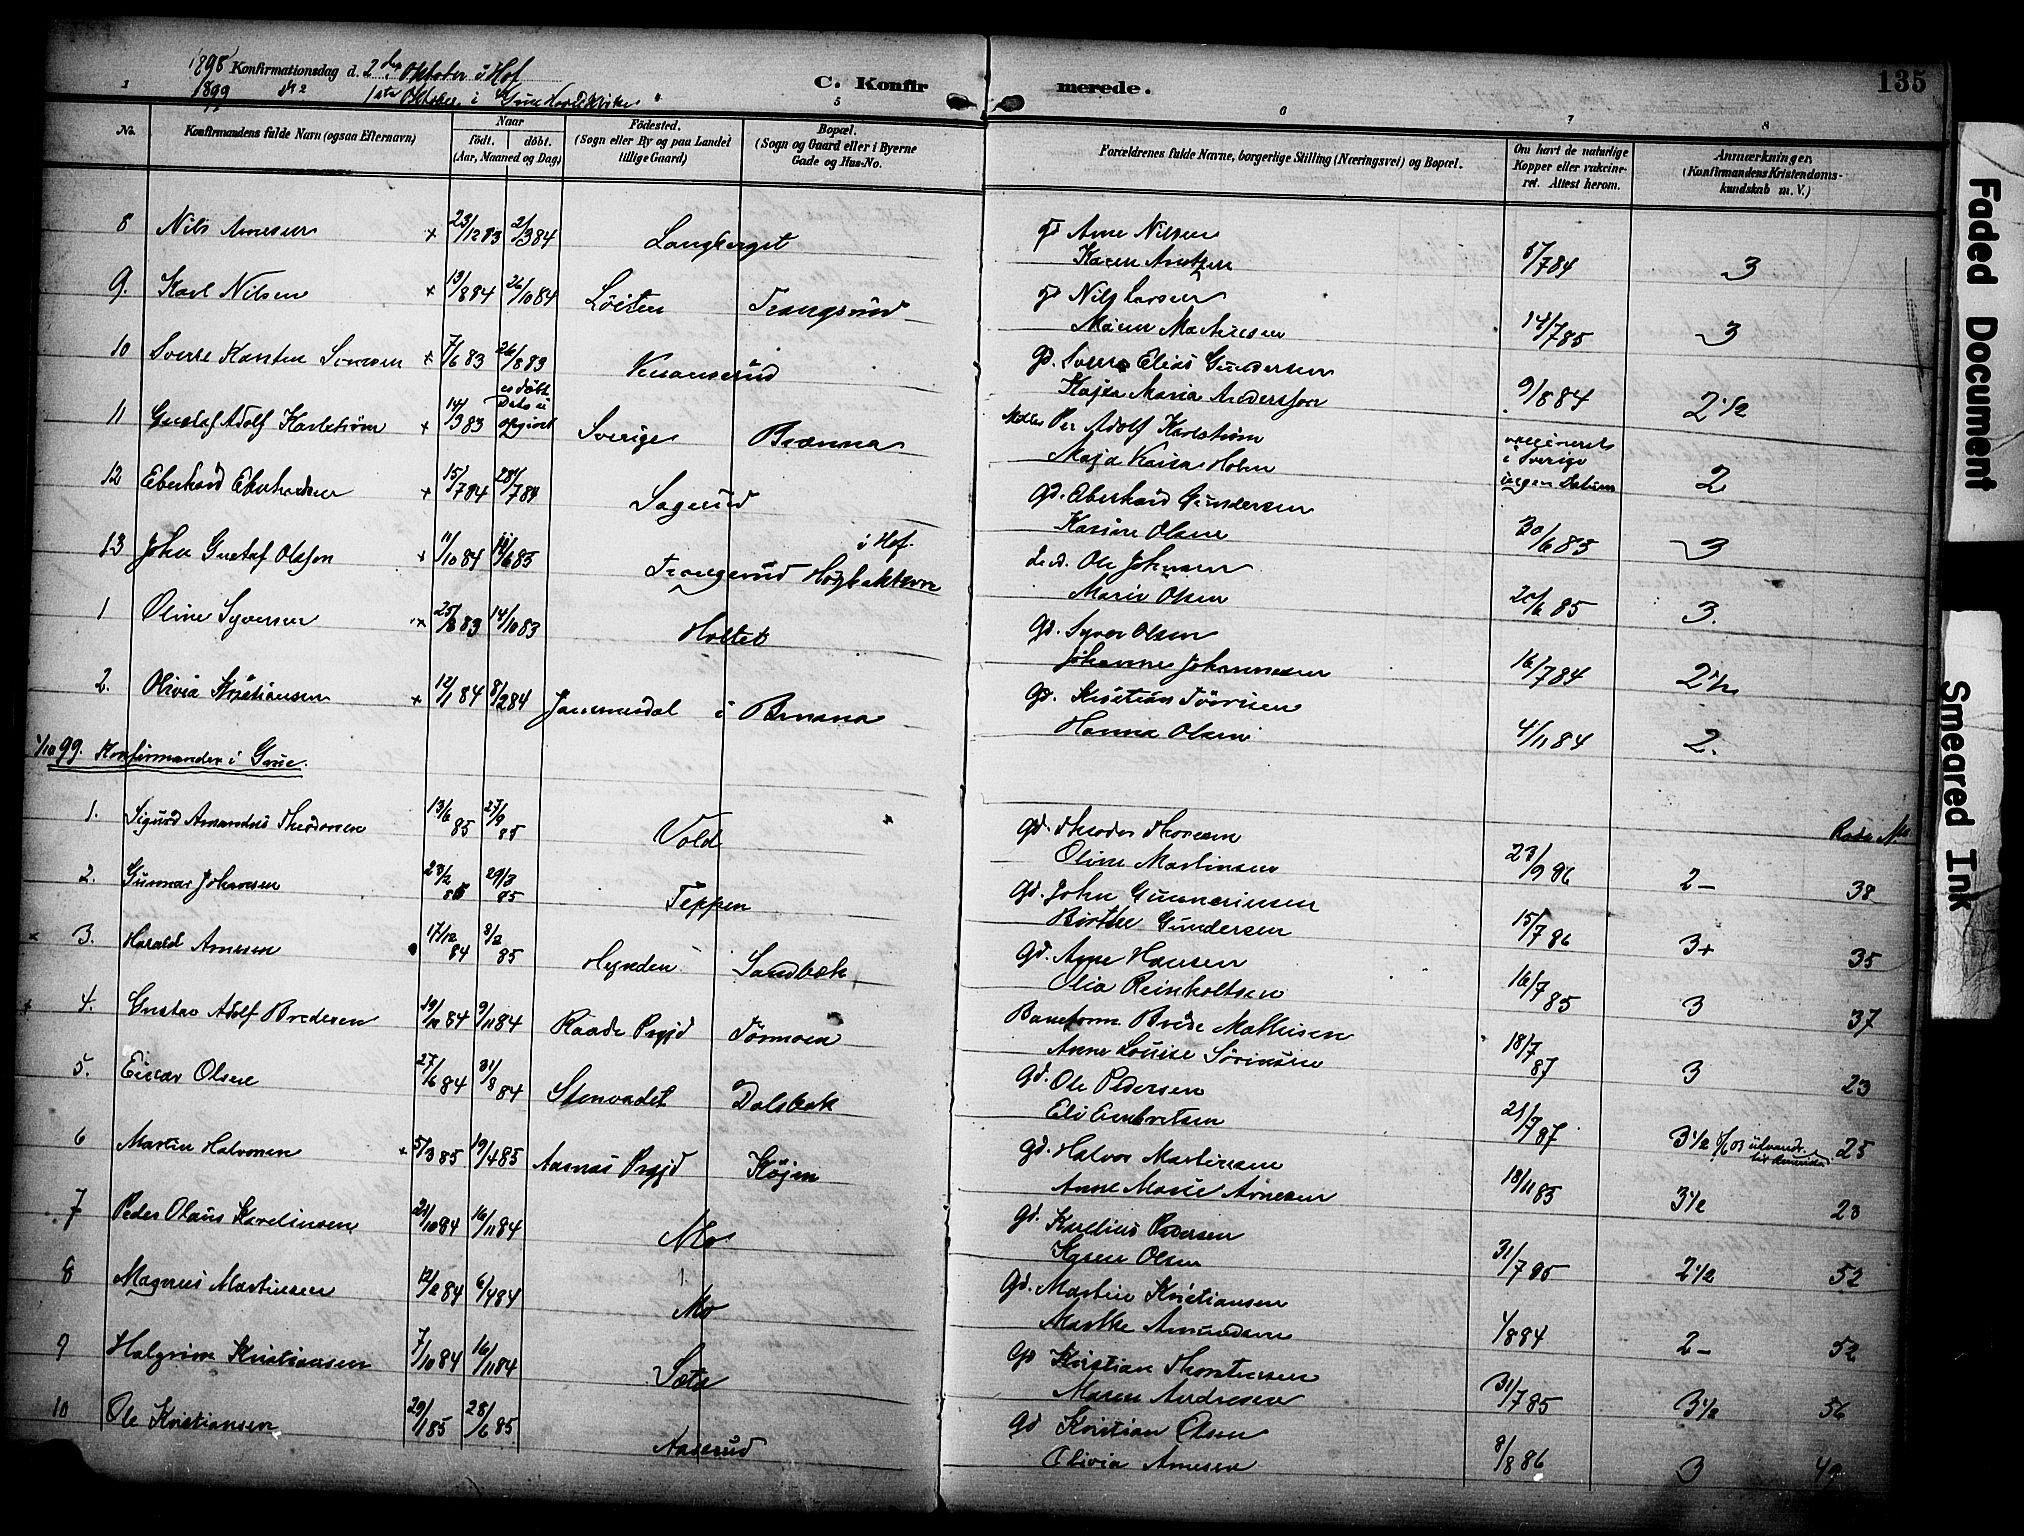 1898 Konfirmationsdag d. 2den Oktober i Hof
1899 1ste Oktober i Grue
C. Konfirmerede.
135
No.
Konfirmandens fulde Navn (ogsaa Efternavn)
Naar
født. døbt.
(Aar, Maaned og Dag)
Fødested.
(Sogn eller By og paa Landet
tillige Gaard)
5
Bopæl.
(Sogn og Gaard eller i Byerne
Gade og Hus-No.
6
Forældrenes fulde Navne, borgerlige Stilling (Næringsvei) og Bopæl.
7
Om havt de naturlige
Kopper eller vakcine-
ret. Attest herom.
8
Anmærkninger
(Konfirmandens Kristendoms-
kundskab m. V.)
8 Nils Arnesen × 23/12 83 2/3 84 Langberget gd Arne Nilsen
Karen Arntzen 5/7 84 3
9. Karl Nilsen × 13/8 84 26/10 84 Løiten Trangsrud gd Nils Larsen
Maren Mathiesen 14/7 85 3
10 Sverre Karsten × 7/6 83 26/8 83 gd. Sverre Elias Gundersen
Kajsa Maria Andersson 9/8 84 2 1/2
11 Gustaf Adolf Karlstrøm × 14/3 83 døbt Dato ei opgivet Sverige Brænna Per Adolf Karlstrøm
Maja Kaisa Holm vaccineret
i Sverige
ingen Datum 2
12 Eberhard Eberhardsen × 15/7 84 28/7 84 Sagerud gd. Eberhard Gundersen
Karine Olsen 30/6 85 3
13 John Gustaf Olsson × 11/10 84 /6 85 Trangsrud i Hof. Ole Johnsen
Marie Olsen 20/6 85 3.
1 Oline Syversen × 25/8 83 14/10 83 Holtet gd. Syver Olsen
Johanne Johannesen 16/7 84 2 1/2
2. Olivia Kristiansen × 12/1 84 8/2 84 Jammerdal i Brænna gd. Kristian
Hanna Olsen 4/11 84 2.
1/10 99. Konfirmander i Grue.
1. Sigurd Amandus Theodorsen 13/6 85 27/9 85 Vold gd. Theodor Thoresen Rode No.
Oline Martinsen 23/9 86 2- 38
2. Gunnar Johnsen 23/2 85 29/3 85 Teppen gd. John Gunneriusen
Birthe Gundersen 15/7 86 3+ 35
× 3. Harald Arnesen 17/12 84 8/2 85 Hynden Sandbæk gd. Arne Hansen
Olia Reinholtsen 16/7 85 3 37
× 4. Gustav Adolf Bredesen 19/10 84 9/11 84 Raade Prgjd Tørmoen Baneform. Brede Mathisen
Anne Louise Sørensen 18/7 87 3 23
5. Einar Olsen 27/6 84 31/8 84 Stenvadet Dalsbæk gd. Ole Pedersen
Eli Embretsen 21/7 87 3 1/2 /6 03 udvandr. til Amerika 25
6 Martin Halvorsen × 5/3 85 19/4 85 Aasnæs Prgjd Køjen gd. Halvor Martinsen
Anne Marie Arnesen 18/11 85 3 1/2 23
7 Peder Olaus Kareliusen 21/10 84 16/11 84 Mo gd. Karelius Pedersen
Karen Olsen 31/7 85 2 1/2 52
8 Magnus Martinsen 12/2 84 6/4 84 Mo gd. Martin Kristiansen
Marthe Amundsen 1/8 84 2- 52
9 Halgrim Kristiansen 7/10 84 16/11 84 Sæta gd Kristian Thorstensen
Maren Andresen 31/7 85 3 1/2 56
10 Ole Kristiansen 29/1 85 28/6 85 Aaserud gd Kristian Olsen
Olivia Arnesen 8/8 86 3 49
Faded Document
Smeared Ink